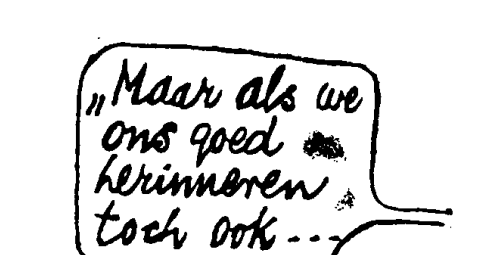 „Maar als we
ons goed
herinneren
toch ook ---